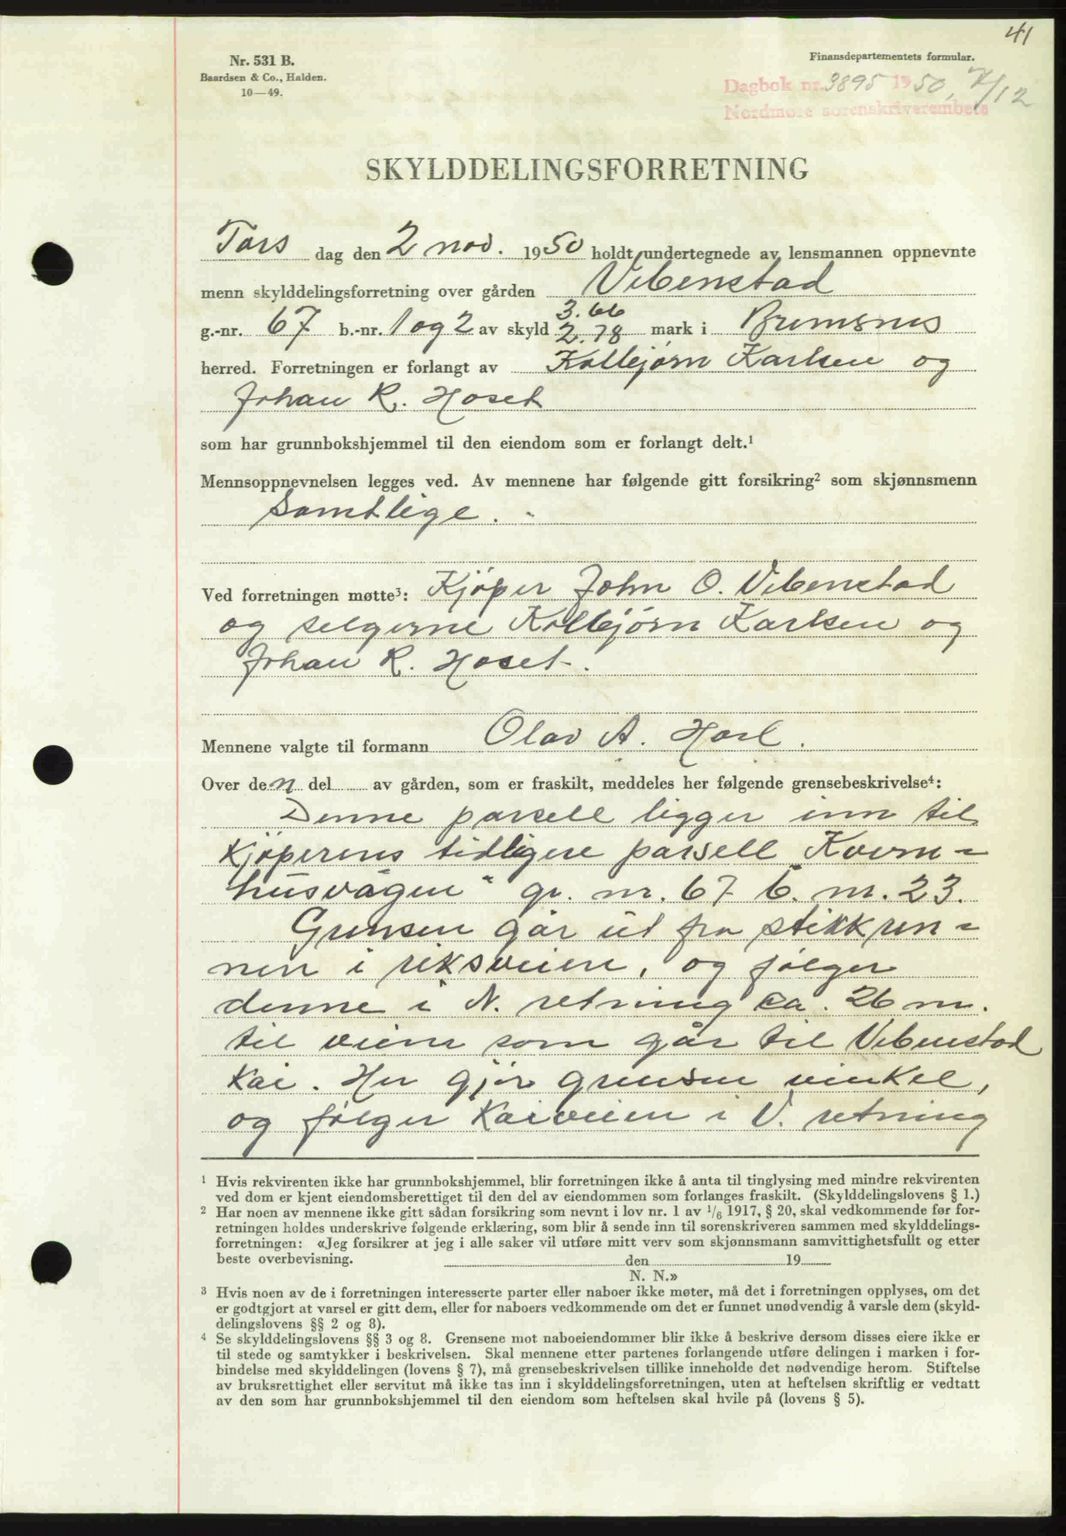 41
Nr. 531 B.
Baardsen & Co., Halden.
10—49.
Finansdepartementets formular.
Dagbok nr. 3895 1950, 7/12
Nordmøre sorenskriverembete
SKYLDDELINGSFORRETNING
Tors dag den 2 nov. 1950 holdt undertegnede av lensmannen oppnevnte
menn skylddelingsforretning over gården Vebenstad
3.66
g.-nr. 67 b.-nr. 1 og 2 av skyld 2.78 mark i Bremsnes
herred. Forretningen er forlangt av Kolbjørn Karlsen og
Johan R. Hoset
som har grunnbokshjemmel til den eiendom som er forlangt delt.¹
Mennsoppnevnelsen legges ved. Av mennene har følgende gitt forsikring² som skjønnsmenn
Samtlige.
Ved forretningen møtte³: Kjøper John O. Vebenstad
og selgerne Kolbjørn Karlsen og
Johan R. Hoset.
Mennene valgte til formann Olav A. .
Over den del av gården, som er fraskilt, meddeles her følgende grensebeskrivelse⁴:
Denne parsell ligger inn til
kjøperens tidligere parsell „Kvern=
husvågen" gr. nr. 67 b. nr. 23.
Grensen går ut fra stikkren=
nen i riksveien, og følger
denne i N. retning ca. 26 m.
til veien som går til Vebenstad
kai. Her gjør grensen vinkel,
og følger kaiveien i V. retning
¹ Hvis rekvirenten ikke har grunnbokshjemmel, blir forretningen ikke å anta til tinglysing med mindre rekvirenten
ved dom er kjent eiendomsberettiget til den del av eiendommen som forlanges fraskilt. (Skylddelingslovens § 1.)
² Har noen av mennene ikke gitt sådan forsikring som nevnt i lov nr. 1 av ¹/₆ 1917, § 20, skal vedkommende før for-
retningen holdes underskrive følgende erklæring, som blir å sende inn til sorenskriveren sammen med skylddelings-
forretningen: «Jeg forsikrer at jeg i alle saker vil utføre mitt verv som skjønnsmann samvittighetsfullt og etter
beste overbevisning. den 19
N. N.»
³ Hvis noen av de i forretningen interesserte parter eller naboer ikke møter, må det i forretningen opplyses, om det
er godtgjort at varsel er gitt dem, eller for naboers vedkommende om det er funnet unødvendig å varsle dem (skyld-
delingslovens §§ 2 og 8).
⁴ Se skylddelingslovens §§ 3 og 8. Grensene mot naboeiendommer blir ikke å beskrive dersom disses eiere ikke er
til stede og samtykker i beskrivelsen. Skal mennene etter partenes forlangende utføre delingen i marken i for-
bindelse med skylddelingen (lovens § 7), må grensebeskrivelsen tillike inneholde det nødvendige herom. Stiftelse
av bruksrettighet eller servitut må ikke tas inn i skylddelingsforretningen, uten at heftelsen skriftlig er vedtatt
av den som har grunnbokshjemmel til den eiendom som heftelsen skal hvile på (lovens § 5).